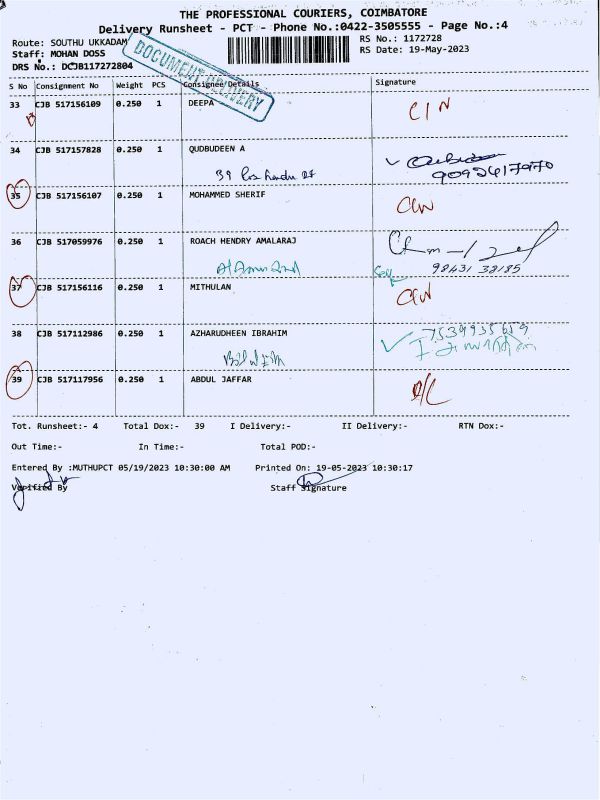 THE PROFESSIONAL COURIERS, COIMBATORE
Delivery Runsheet - PCT - Phone No.:0422-3505555 - Page No.:4
Route: SOUTHU UKKADAM
RS No.: 1172728
Staff: MOHAN DOSS
RS Date: 19-May-2023
DRS No.: DCJB117272804
DOCUMENT DELIVERY
S No Consignment No Weight PCS Consignee/Details Signature
33 CJB 517156109 0.250 1 DEEPA
34 CJB 517157828 0.250 1 QUDBUDEEN A
39
35 CJB 517156107 0.250 1 MOHAMMED SHERIF
36 CJB 517059976 0.250 1 ROACH HENDRY AMALARAJ
98431 38185
37 CJB 517156116 0.250 1 MITHULAN
38 CJB 517112986 0.250 1 AZHARUDHEEN IBRAHIM
7539935659
39 CJB 517117956 0.250 1 ABDUL JAFFAR
Tot. Runsheet:- 4 Total Dox:- 39 I Delivery:- II Delivery:- RTN Dox:-
Out Time:- In Time:- Total POD:-
Entered By :MUTHUPCT 05/19/2023 10:30:00 AM Printed On: 19-05-2023 10:30:17
Verified By Staff Signature